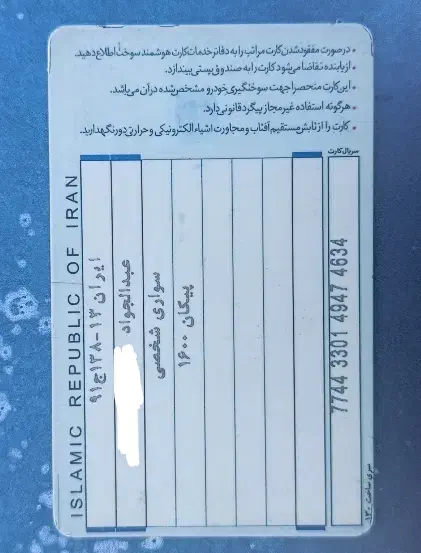 • در صورت مفقود شدن کارت مراتب را به دفاتر خدمات کارت هوشمند سوخت اطلاع دهید.
• از یابنده تقاضا می‌شود کارت را به صندوق پستی بیندازد.
• این کارت منحصرا جهت سوختگیری خودرو مشخص شده در آن می‌باشد.
• هرگونه استفاده غیرمجاز پیگرد قانونی دارد.
• کارت را از تابش مستقیم آفتاب و مجاورت اشیاء الکترونیکی و حرارتی دور نگهدارید.
سریال کارت
7744 3301 4947 4634
پیکان ۱۶۰۰
سواری شخصی
عبدالجواد
ایران ۱۳-۱۳۸ج۹۱
ISLAMIC REPUBLIC OF IRAN
سری ساخت ۱۳۰